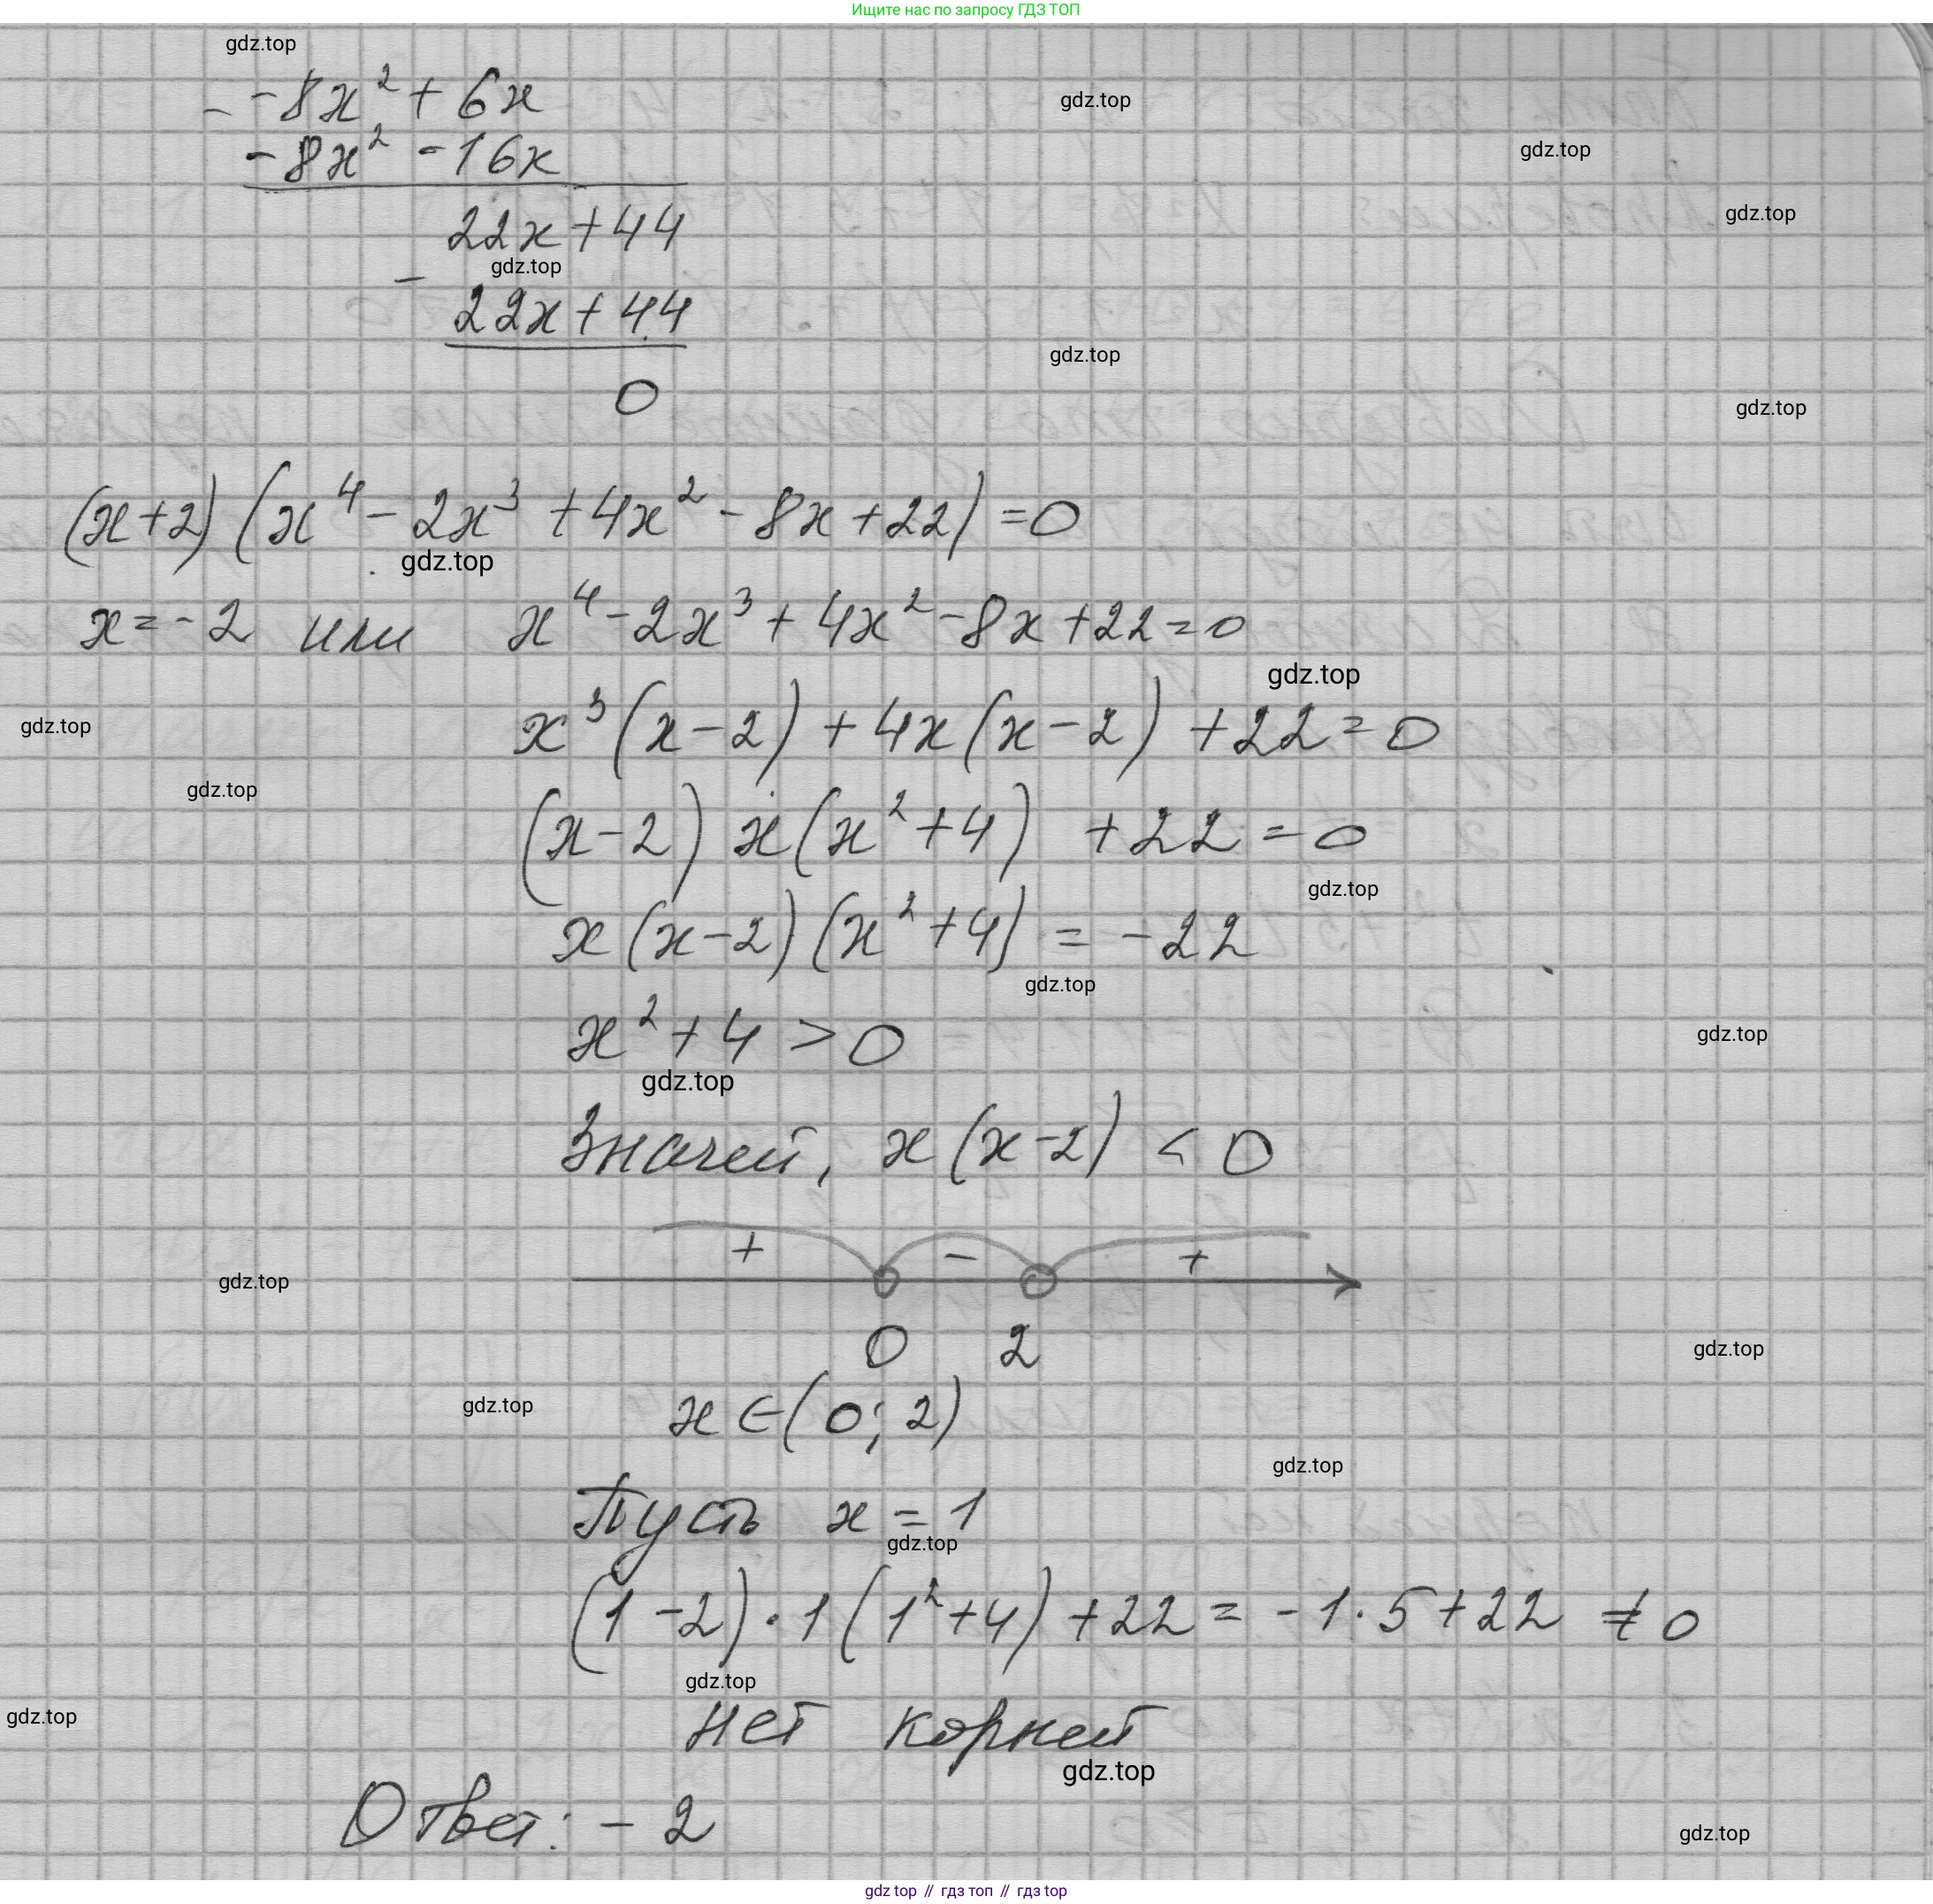 Ищите нас по запросу ГДЗ ТОП
gdz.top
- -8x² + 6x
gdz.top
-8x² - 16x
gdz.top
22x + 44
gdz.top
gdz.top
-
22x + 44
gdz.top
0
gdz.top
(x+2) (x⁴ - 2x³ + 4x² - 8x + 22) = 0
gdz.top
x = -2 или x⁴ - 2x³ + 4x² - 8x + 22 = 0
gdz.top
x³(x-2) + 4x(x-2) + 22 = 0
gdz.top
gdz.top
(x-2) x(x²+4) + 22 = 0
gdz.top
x(x-2)(x²+4) = -22
gdz.top
x² + 4 > 0
gdz.top
gdz.top
Значит, x(x-2) < 0
+ - +
gdz.top
0 2
gdz.top
x ∈ (0; 2)
gdz.top
gdz.top
Пусть x = 1
gdz.top
(1-2)·1(1²+4) + 22 = -1·5 + 22 ≠ 0
gdz.top
нет корней
gdz.top
gdz.top
Ответ: -2
gdz.top
gdz top // гдз топ // гдз top